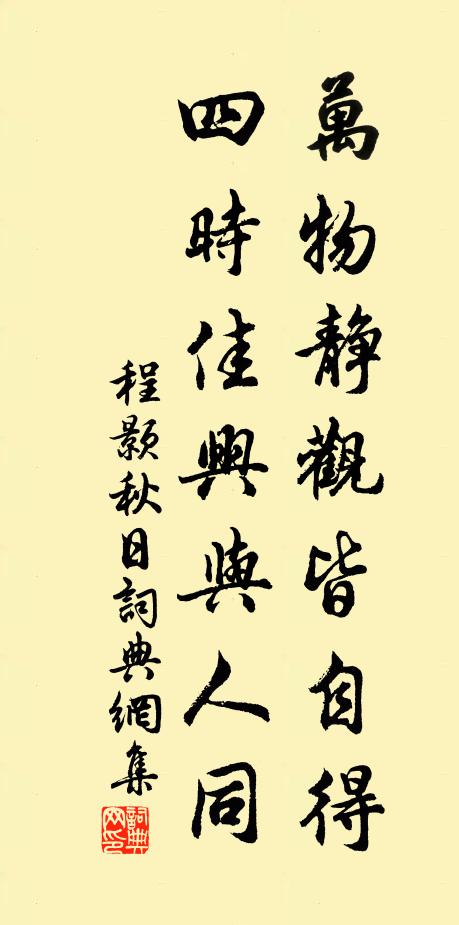 萬物靜觀皆自得
四時佳興與人同
程顥秋日詞典網集
詞典網印